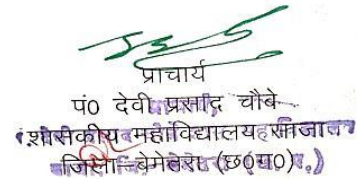 प्राचार्य
पं0 देवी प्रसाद चौबे
शासकीय महाविद्यालय साजा
जिला बेमेतरा (छ0ग0)